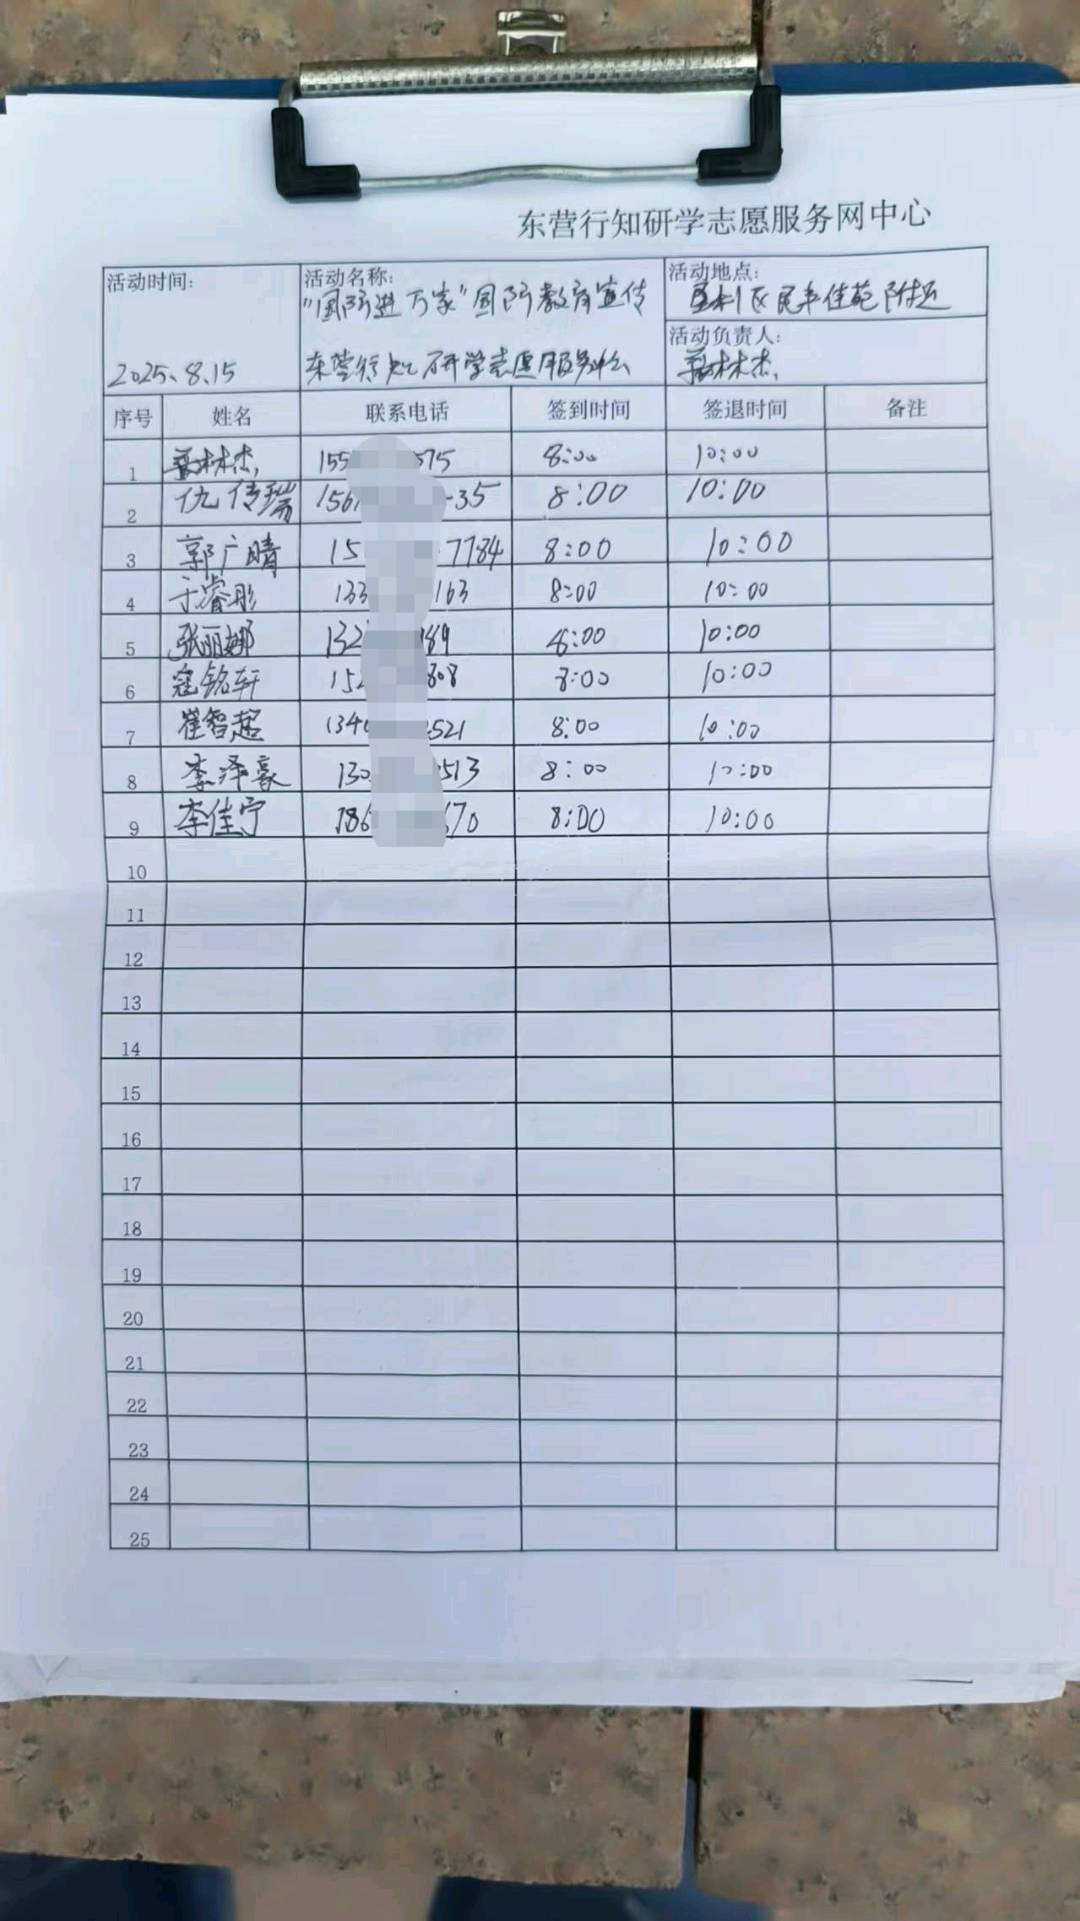 东营行知研学志愿服务网中心
活动时间:
2025.8.15
活动名称:
"国防进万家"国防教育宣传
东营行知研学志愿服务中心
活动地点:
垦利区民丰佳苑附近
活动负责人:
林杰
序号 姓名 联系电话 签到时间 签退时间 备注
1 林杰 155 575 8:00 10:00
2 仇传瑞 156 35 8:00 10:00
3 郭广晴 15 7784 8:00 10:00
4 于睿彤 133 163 8:00 10:00
5 张丽娜 132 189 8:00 10:00
6 寇铭轩 152 808 8:00 10:00
7 崔智超 134 521 8:00 10:00
8 李泽豪 130 513 8:00 10:00
9 李佳宁 186 670 8:00 10:00
10
11
12
13
14
15
16
17
18
19
20
21
22
23
24
25